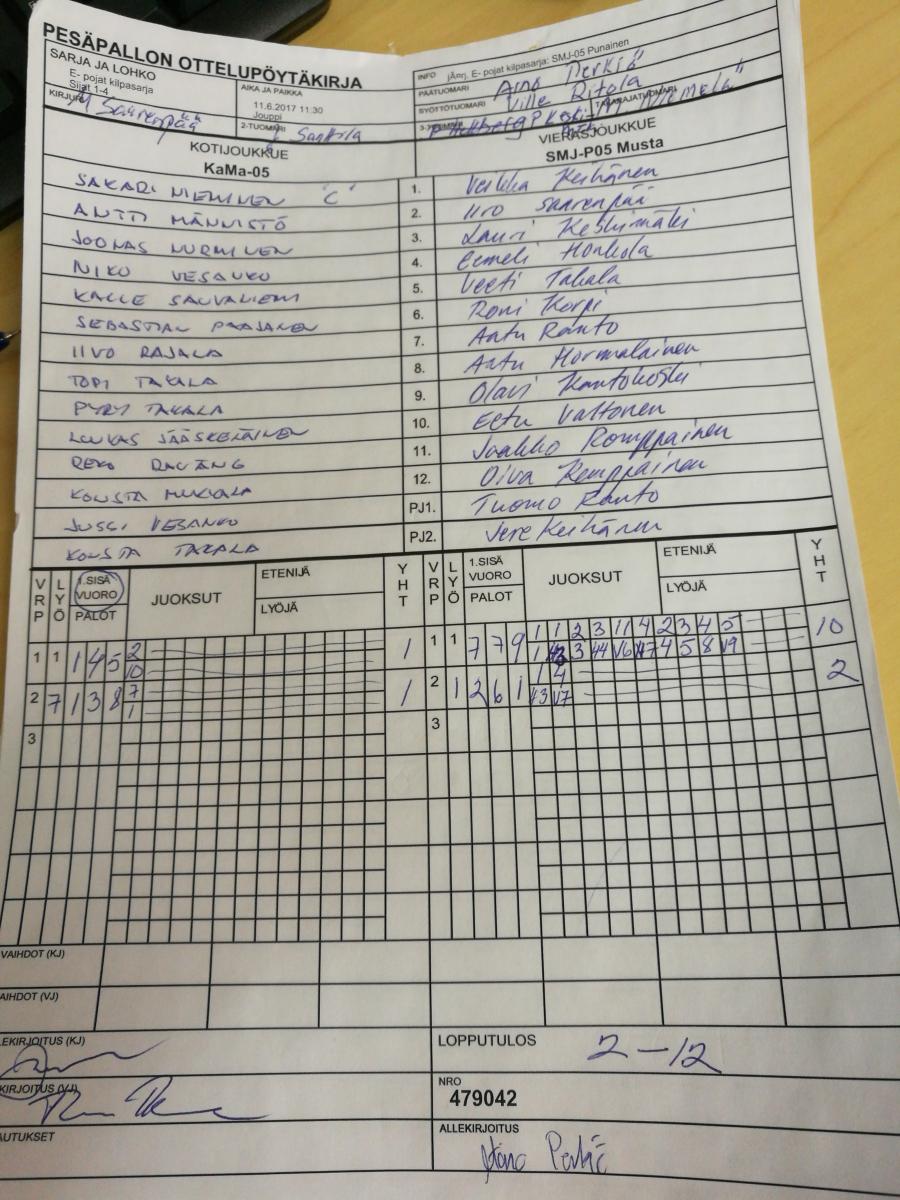 PESÄPALLON OTTELUPÖYTÄKIRJA
SARJA JA LOHKO
E- pojat kilpasarja
Sijat 1-4
AIKA JA PAIKKA
11.6.2017 11:30
Jouppi
INFO jÃ¤rj. E- pojat kilpasarja: SMJ-05 Punainen
PÄÄTUOMARI
SYÖTTÖTUOMARI Ville Ritola
KIRJURI Saarenpää
2-TUOMARI
TAKARAJATUOMARI
KOTIJOUKKUE
KaMa-05
VIERASJOUKKUE
SMJ-P05 Musta
SAKARI NIEMINEN "C" 1. Veikka Keihänen
ANTTI MÄNNISTÖ 2. Iiro Saarenpää
JOONAS NURMINEN 3. Lauri Keskimäki
NIKO VESANKO 4. Eemeli Honkola
KALLE SAUVALIEMI 5. Veeti Takala
SEBASTIAN PAAJANEN 6. Roni Korpi
IIVO RAJALA 7. Aatu Ranto
TOPI TAKALA 8. Aatu Hormalainen
PYRY TAKALA 9. Olavi Kantokoski
LOUKAS JÄÄSKELÄINEN 10. Eetu Valtonen
REKO 11. Jaakko Romppainen
KONSTA MUKKALA 12. Oiva Kemppainen
JUSSI VESANKO PJ1. Tuomo Ranto
KONSTA TAKALA PJ2. Jere Keihänen
VRP LYÖ 1.SISÄ VUORO PALOT JUOKSUT ETENIJÄ LYÖJÄ YHT VRP LYÖ 1.SISÄ VUORO PALOT JUOKSUT ETENIJÄ LYÖJÄ YHT
1 1 1 4 5 2 1 1 1 7 7 9 1 1 2 3 11 4 2 3 4 5 10
10 1 3 4 5 8
2 7 1 3 8 7 1 2 1 2 6 1 1 4 2
1
3 3
VAIHDOT (KJ)
AIHDOT (VJ)
LEKIRJOITUS (KJ)
KIRJOITUS (VJ)
AUTUKSET
LOPPUTULOS 2-12
NRO
479042
ALLEKIRJOITUS